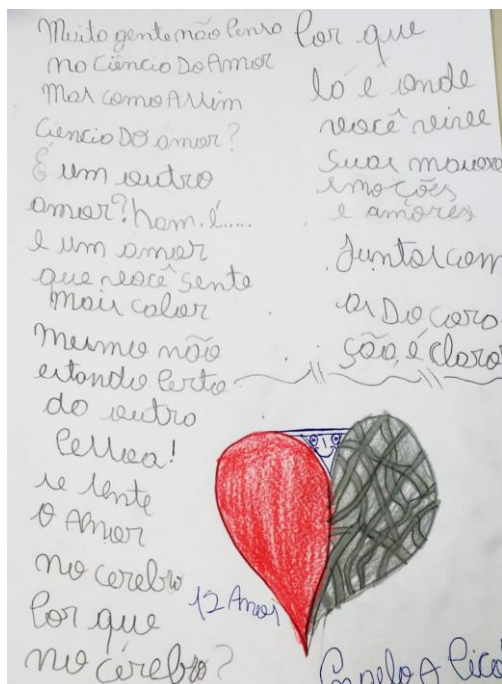 Muito gente não Penso
no Ciêncio Do Amor
Mas como Assim
Ciencio DO amor?
É um outro
amor? ham. é.....
é um amor
que você sente
mais calor
mesmo não
estando Perto
do outro
Pessoa!
se sente
O Amor
no cérebro
Por que
no cérebro?
Por que
lá é onde
você vive
suas maiores
emoções
e amores
Juntos com
os Do cora
ção, é claro
12 Anos